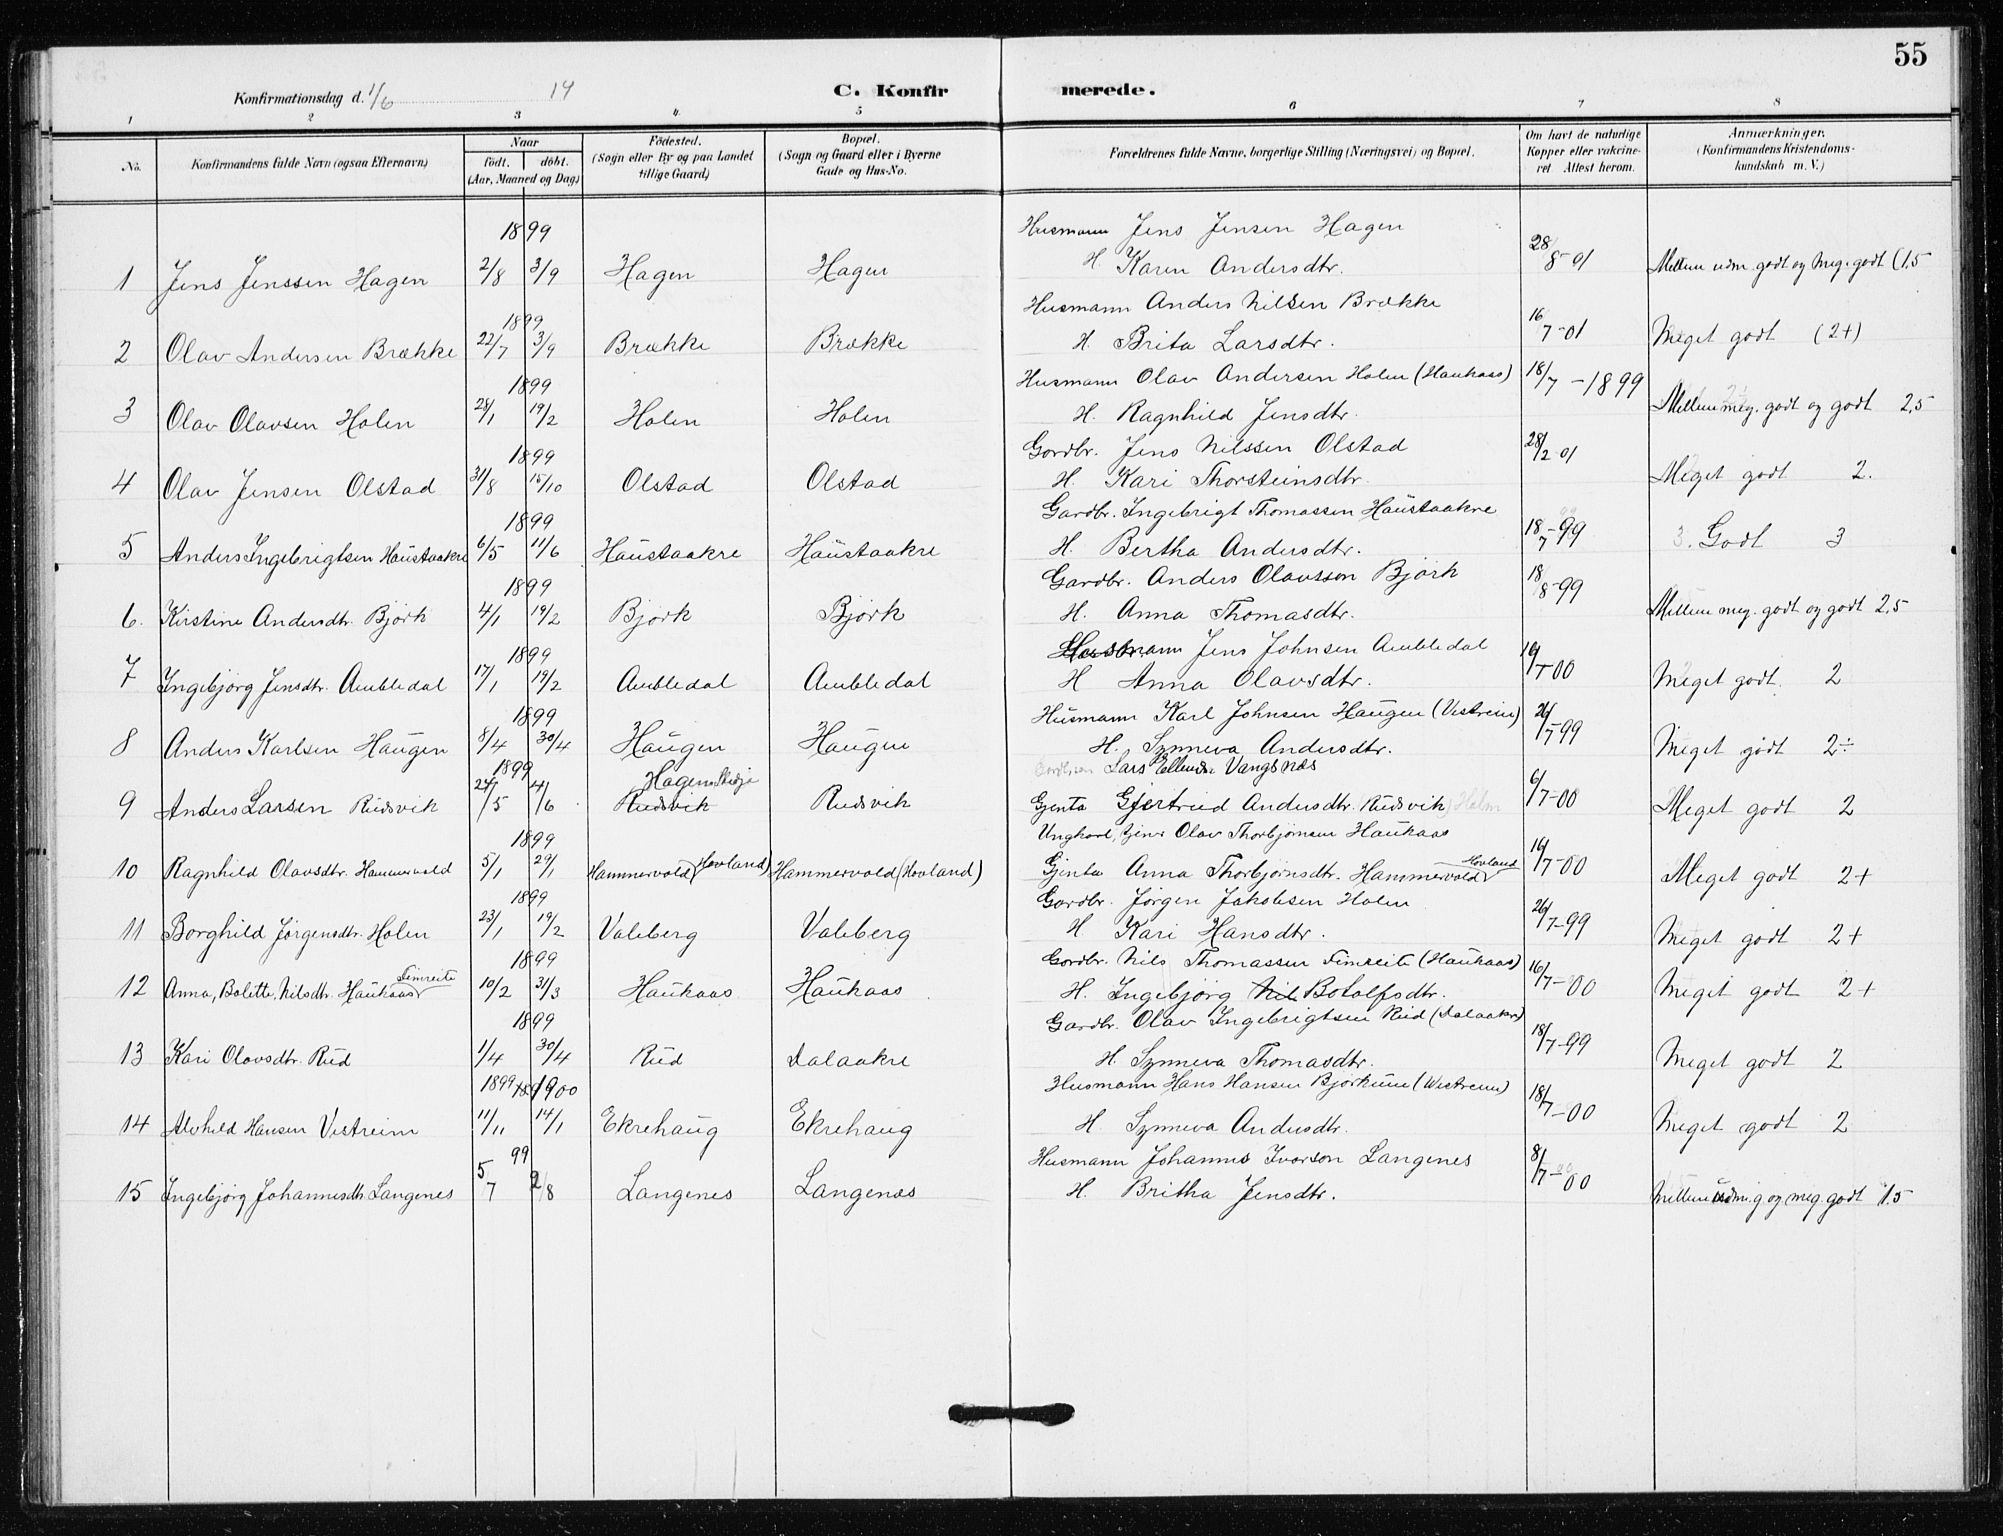 55
Konfirmationsdag d. 1/6 14 C. Konfirmerede.
1 2 3 4. 5 6 7 8
No. Konfirmandens fulde Navn (ogsaa Efternavn) Naar født. døbt. (Aar, Maaned og Dag) Fødested. (Sogn eller By og paa Landet tillige Gaard.) Bopæl. (Sogn og Gaard eller i Byerne Gade og Hus-No. Forældrenes fulde Navne, borgerlige Stilling (Næringsvei) og Bopæl. Om havt de naturlige Kopper eller vakcineret Attest herom. Anmærkninger. (Konfirmandens Kristendomskundskab m. V.)
1899 Husmann Jens Jensen Hagen
1 Jens Jenssen Hagen 2/8 3/9 Hagen Hagen H. Karen Andersdtr. 28/8-01 Mellem udm. godt og Meg. godt (1,5
1899 Husmann Anders Nilsen Brække
2 Olav Andersen Brække 22/7 3/9 Brække Brække H. Brita Larsdtr. 16/7-01 Meget godt (2+)
1899 Husmann Olav Andersen Holen (Haukaas)
3 Olav Olavsen Holen 28/1 19/2 Holen Holen H. Ragnhild Jensdtr. 18/7-1899 Mellem meg. godt og godt 2,5
1899 Gardbr. Jens Nilssen Olstad
4 Olav Jensen Olstad 31/8 15/10 Olstad Olstad H. Kari Thorsteinsdtr. 28/2 01 Meget godt 2.
1899 Gardbr. Ingebrigt Thomassen Haustaakre
5 Anders Ingebrigtsen Haustaakre 6/5 11/6 Haustaakre Haustaakre H. Bertha Andersdtr. 18/7-99 3. Godt 3
1899 Gardbr. Anders Olavsson Bjørk
6. Kirstine Andersdtr. Bjørk 4/1 19/2 Bjørk Bjørk H. Anna Thomasdtr. 18/8-99 Mellem meg. godt og godt 2,5
1899 Husmann Jens Johnsen Ambledal
7 Ingebjørg Jensdtr. Ambledal 17/1 19/2 Ambledal Ambledal H Anna Olavsdtr. 19/7-00 Meget godt. 2
1899 Husmann Karl Johnsen Haugen (Vestreim)
8 Anders Karlsen Haugen 8/4 30/4 Haugen Haugen H. Synneva Andersdtr. 26/7-99 Meget godt 2÷
1899 Hagen Lars Ellendsen Vangsnæs
9 Anders Larsen Rudsvik 24/5 4/6 Rudsvik Rudsvik Gjenta Gjertrud Andersdtr. Rudsvik 6/7-00 Meget godt 2
1899 Ungkarl, Olav Thorbjørnsen Haukaas
10 Ragnhild Olavsdtr. Hammervold 5/1 29/1 Hammervold (Hovland) Hammervold (Hovland) Gjenta Anna Thorbjørnsdtr. Hammervold Hovland 19/7-00 Meget godt 2+
1899 Gardbr. Jørgen Jakobsen Holen
11 Borghild Jørgensdtr. Holen 23/1 19/2 Valeberg Valeberg H Kari Hansdtr. 26/7-99 Meget godt 2+
1899 Gardbr. Nils Thomassen Fimreite (Haukaas)
12 Anna, Bolitte, Nilsdtr. Haukaas Fimreite 10/2 31/3 Haukaas Haukaas H. Ingebjørg Nil Botolfsdtr. 16/7-00 Meget godt 2+
1899 Gardbr. Olav Ingebrigtsen Rud (Dalaakre)
13 Kari Olavsdtr. Rud 1/4 30/4 Rud Dalaakre H. Synneva Thomasdtr. 18/7-99 Meget godt 2
1899 1900 Husmann Hans Hansen Bjørkum (Westreim)
14 Alvhild Hansen Vestreim 11/11 14/1 Ekrehaug Ekrehaug H. Synneva Andersdtr. 18/7-00 Meget godt 2
99 Husmann Johannes Ivarson Langenes
15 Ingebjørg Johannesdtr. Langenes 5/7 2/8 Langenes Langenæs H. Britha Jensdtr. 8/7-00 Mellem udm. g og meg. godt 1.5